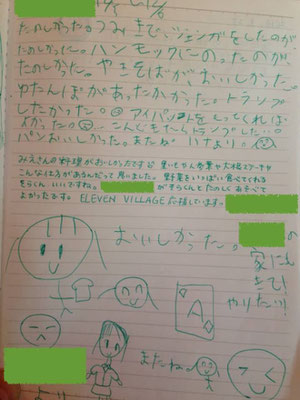 たのしかった。つみきで、ジェンガをしたのが
たのしかった。ハンモックにのったのが、
たのしかった。やきそばが、おいしかった。
ゆたんぽがあったかかった。トランプ
したかった。アイパットをとってくれば
よかった。こんどきたらトランプしたい。
パンおいしかった。またね
みえさんの料理がおいしかったです
こんな味があるんだって思いました。野菜をいっぱい食べてくれる
そらくん いいですね。
がそらくんとたのしくあそべて
よかったです。ELEVEN VILLAGE 応援しています。
おいしかった。
の
家にも
きて!
やりたい!
A
またねー